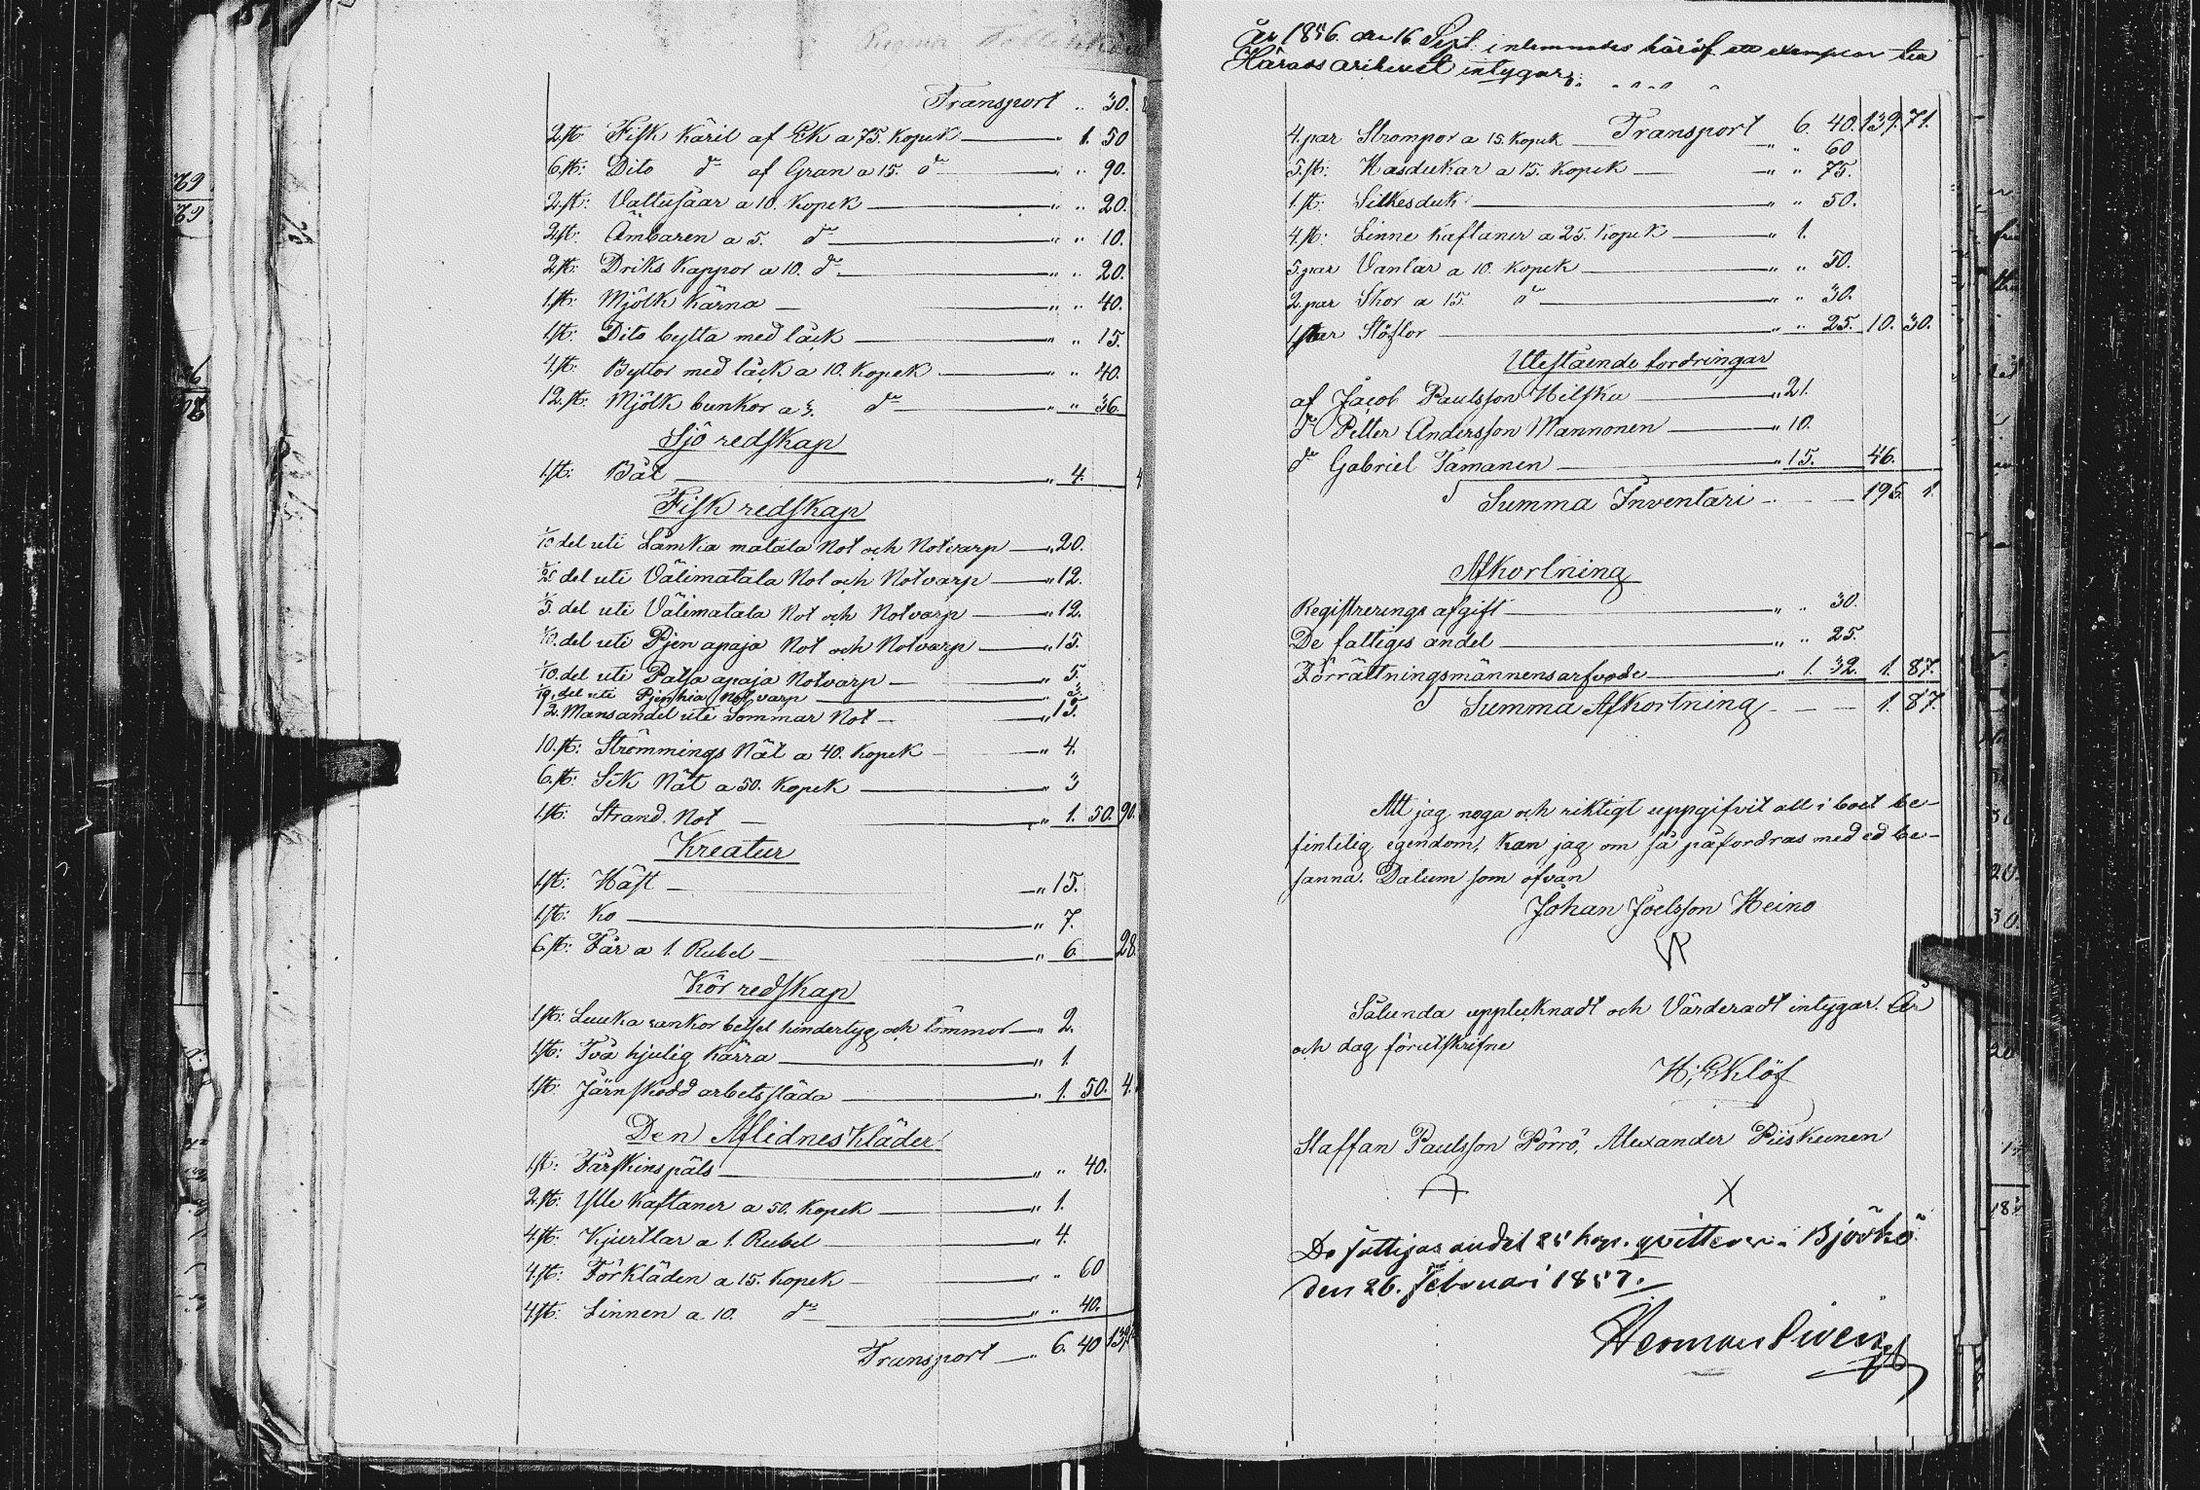 Transport " 30.
2.st: Fisk Käril af Ek a 75. Kopek — " 1. 50
6.st: Dito do af Gran a 15. do — " " 90.
2.st: Vattusåar a 10. Kopek — " " 20.
2.st: Ämbaren a 5. do — " " 10.
2.st: Driks Kappor a 10. do — " " 20.
1.st: Mjölk Kärna — " " 40.
1.st: Dito bytta med låck — " " 15.
4.st: Byttor med låck a 10. Kopek — " " 40.
12.st: Mjölk bunkor a 3. do — " " 36.
Sjö redskap
1.st: Båt — " 4. 4
Fisk redskap
1/10 del uti Lämka matala Not och Notvarp — " 20.
del uti Välimatala Not och Notvarp — " 12.
1/5. del uti Välimatala Not och Notvarp — " 12.
1/10. del uti Pjen apaja Not och Notvarp — " 15.
1/10. del uti Patsa apaja Notvarp — " 5.
del uti Notvarp — " 3.
2. Mansandel uti Sommar Not — " 15.
10.st: Strömmings Nät a 40. Kopek — " 4.
6.st: Sik Nät a 50. Kopek — " 3
1.st: Strand Not — " 1. 50. 90.
Kreatur
1.st: Häst — " 15.
1.st: Ko — " 7.
6.st: Får a 1. Rubel — " 6. 28.
Kör redskap
1.st: Luuka rankor betsel hindertyg och tömmor — " 2.
1.st: Två hjulig Kärra — " 1
1.st: Järnskodd arbetssläda — " 1. 50. 4.
Den Aflidnes Kläder
1.st: Fårskins päls — " " 40.
2.st: Ylle Kaftaner a 50. Kopek — " 1.
4.st: Kjurtlar a 1. Rubel — " 4.
4.st: Förkläden a 15. Kopek — " " 60
4.st: Linnen a 10. do — " " 40.
Transport — " 6. 40 139
År 1856. den 16 Sept. inlemnades häraf ett exemplar till
Härads arkivet intygar:
Transport 6. 40. 139. 71.
4.par Strompor a 15. Kopek — " " 60
5.st: Hasdukar a 15. Kopek — " " 75.
1.st: Silkesduk — " " 50.
4.st: Linne Kaftaner a 25. Kopek — " 1.
5.par Vantar a 10. Kopek — " " 50.
2.par Skor a 15. do — " " 30.
1.par Stöflor — " " 25. 10. 30.
Utestående fordringar
af Jacob Paulsson Hilska — " 21.
do Petter Andersson Mannonen — " 10.
do Gabriel Tamanen — " 15. 46.
Summa Inventari — 195. 1.
Afkortning
Registrerings afgift — " " 30.
De fattiges andel — " " 25.
Förrättningsmännens arfvode — " 1. 32. 1. 87.
Summa Afkortning — 1. 87.
Att jag noga och riktigt uppgifvit all i boet be-
fintelig egendom, Kan jag om så påfordras med ed be-
sanna. Datum som ofvan
Johan Joelsson Heino
Sålunda upptecknadt och Värderadt intygar. År
och dag förutskrifne
H; Eklöf
Staffan Paulsson Pörrö, Alexander Piiskunen
X
De fattigas andel 25 kop. qvitteras i Björkö
den 26. Februari 1857.